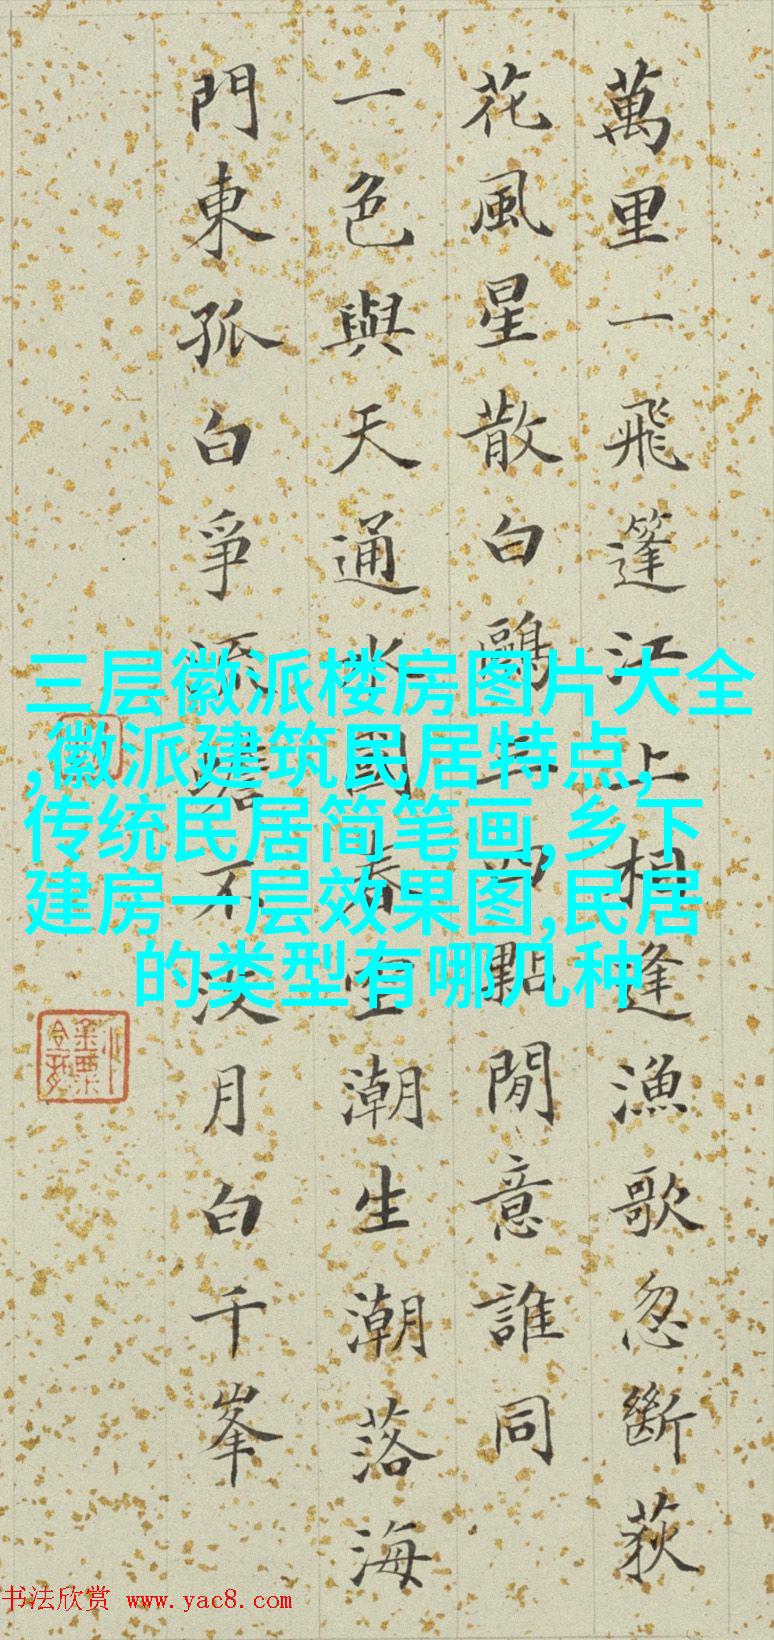 萬里一飛篷江上相逢漁歌忽斷荻
花風星散白鷗三四點閒意誰同
一色與天通水國春空潮生潮落海
門東孤白爭流蟾不淡月白千峯
三层徽派楼房图片大全
,徽派建筑民居特点,
传统民居简笔画,乡下
建房一层效果图,民居
的类型有哪几种
书法欣赏 www.yac8.com